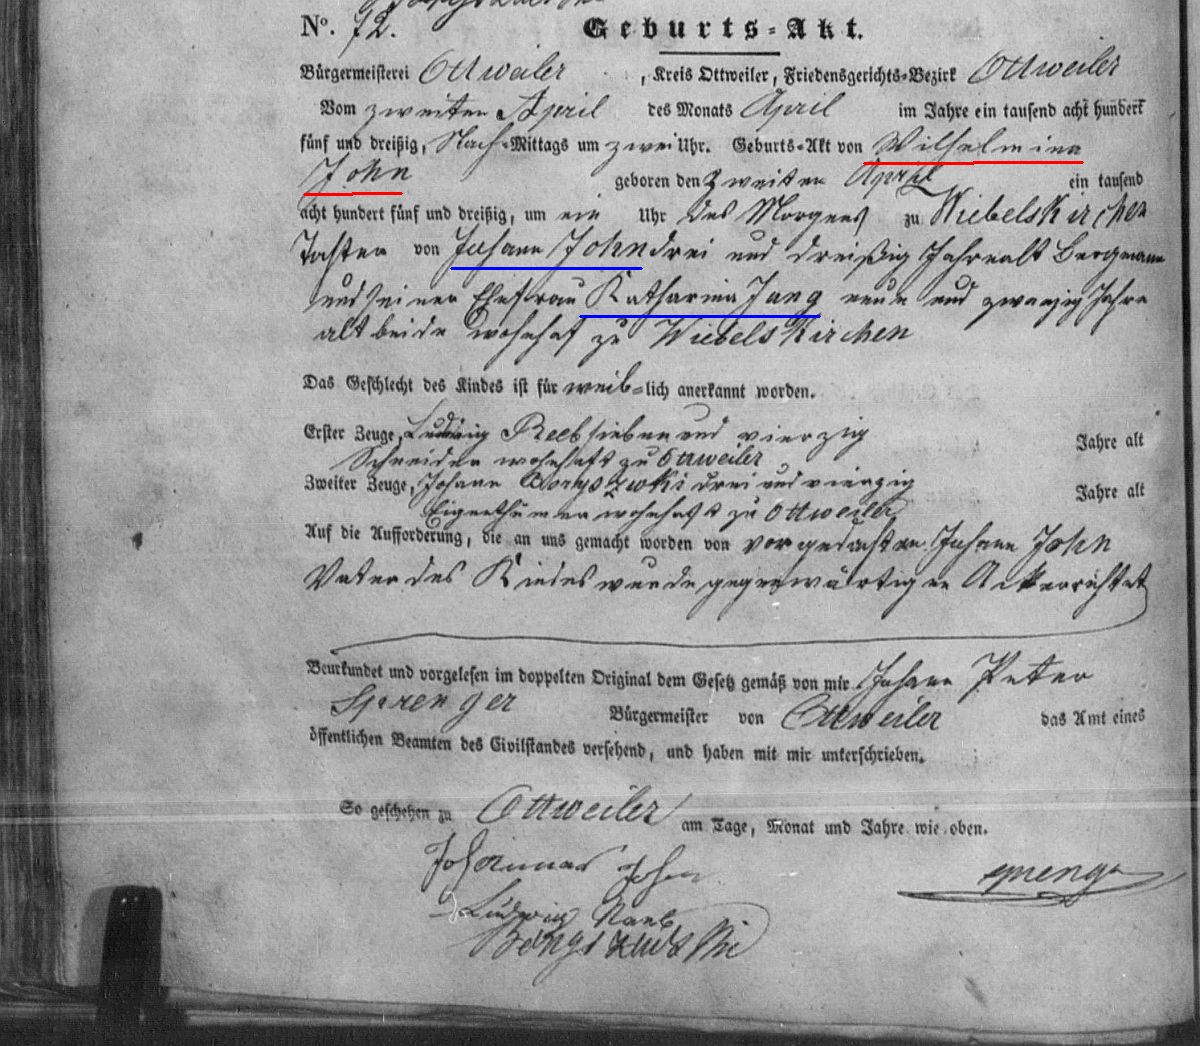 No. 72. Geburts-Akt.
Bürgermeisterei Ottweiler, Kreis Ottweiler, Friedensgerichts-Bezirk Ottweiler
Vom zweiten April des Monats April im Jahre ein tausend acht hundert
fünf und dreißig, Nach-Mittags um zwei Uhr. Geburts-Akt von Wilhelmina
John geboren den zweiten April ein tausend
acht hundert fünf und dreißig, um ein Uhr des Morgens zu Wiebelskirchen
Tochter von Johann John drei und dreißig Jahre alt Bergmann
und seiner Ehefrau Katharina Jung neun und zwanzig Jahre
alt beide wohnhaft zu Wiebelskirchen
Das Geschlecht des Kindes ist für weib-lich anerkannt worden.
Erster Zeuge, Ludwig Reeb sieben und vierzig Jahre alt
Schneider wohnhaft zu Ottweiler
Zweiter Zeuge, Johann drei und vierzig Jahre alt
Eigenthümer wohnhaft zu Ottweiler
Auf die Aufforderung, die an uns gemacht worden von vorgedachten Johann John
Vater des Kindes wurde gegenwärtigen Act errichtet
Beurkundet und vorgelesen im doppelten Original dem Gesetz gemäß von mir Johann Peter
Sprenger Bürgermeister von Ottweiler das Amt eines
öffentlichen Beamten des Civilstandes versehend, und haben mit mir unterschrieben.
So geschehen zu Ottweiler am Tage, Monat und Jahre wie oben.
Johannes John
Ludwig